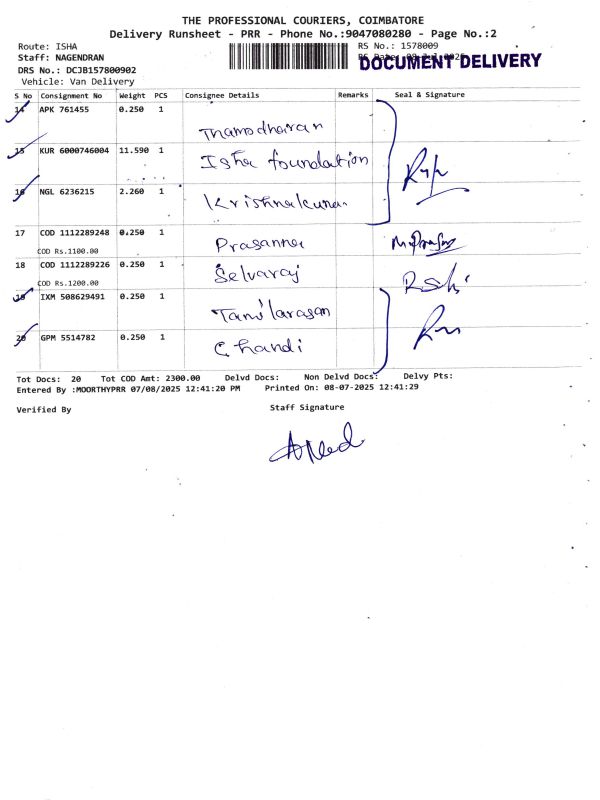 THE PROFESSIONAL COURIERS, COIMBATORE
Delivery Runsheet - PRR - Phone No.:9047080280 - Page No.:2
Route: ISHA RS No.: 1578009
Staff: NAGENDRAN DOCUMENT DELIVERY
DRS No.: DCJB157800902
Vehicle: Van Delivery
S No Consignment No Weight PCS Consignee Details Remarks Seal & Signature
14 APK 761455 0.250 1
Thamodharan
15 KUR 6000746004 11.590 1 Isha foundation
16 NGL 6236215 2.260 1 Krishnakumar
17 COD 1112289248 0.250 1 Prasanna
COD Rs.1100.00
18 COD 1112289226 0.250 1 Selvaraj
COD Rs.1200.00
19 IXM 508629491 0.250 1 Tamilarasan
20 GPM 5514782 0.250 1 Chandi
Tot Docs: 20 Tot COD Amt: 2300.00 Delvd Docs: Non Delvd Docs: Delvy Pts:
Entered By :MOORTHYPRR 07/08/2025 12:41:20 PM Printed On: 08-07-2025 12:41:29
Verified By Staff Signature